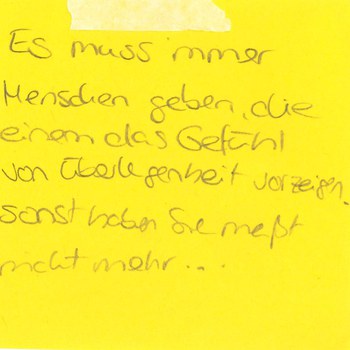 Es muss immer
Menschen geben, die
einem das Gefühl
von Überlegenheit vorzeigen,
sonst haben Sie
nicht mehr...